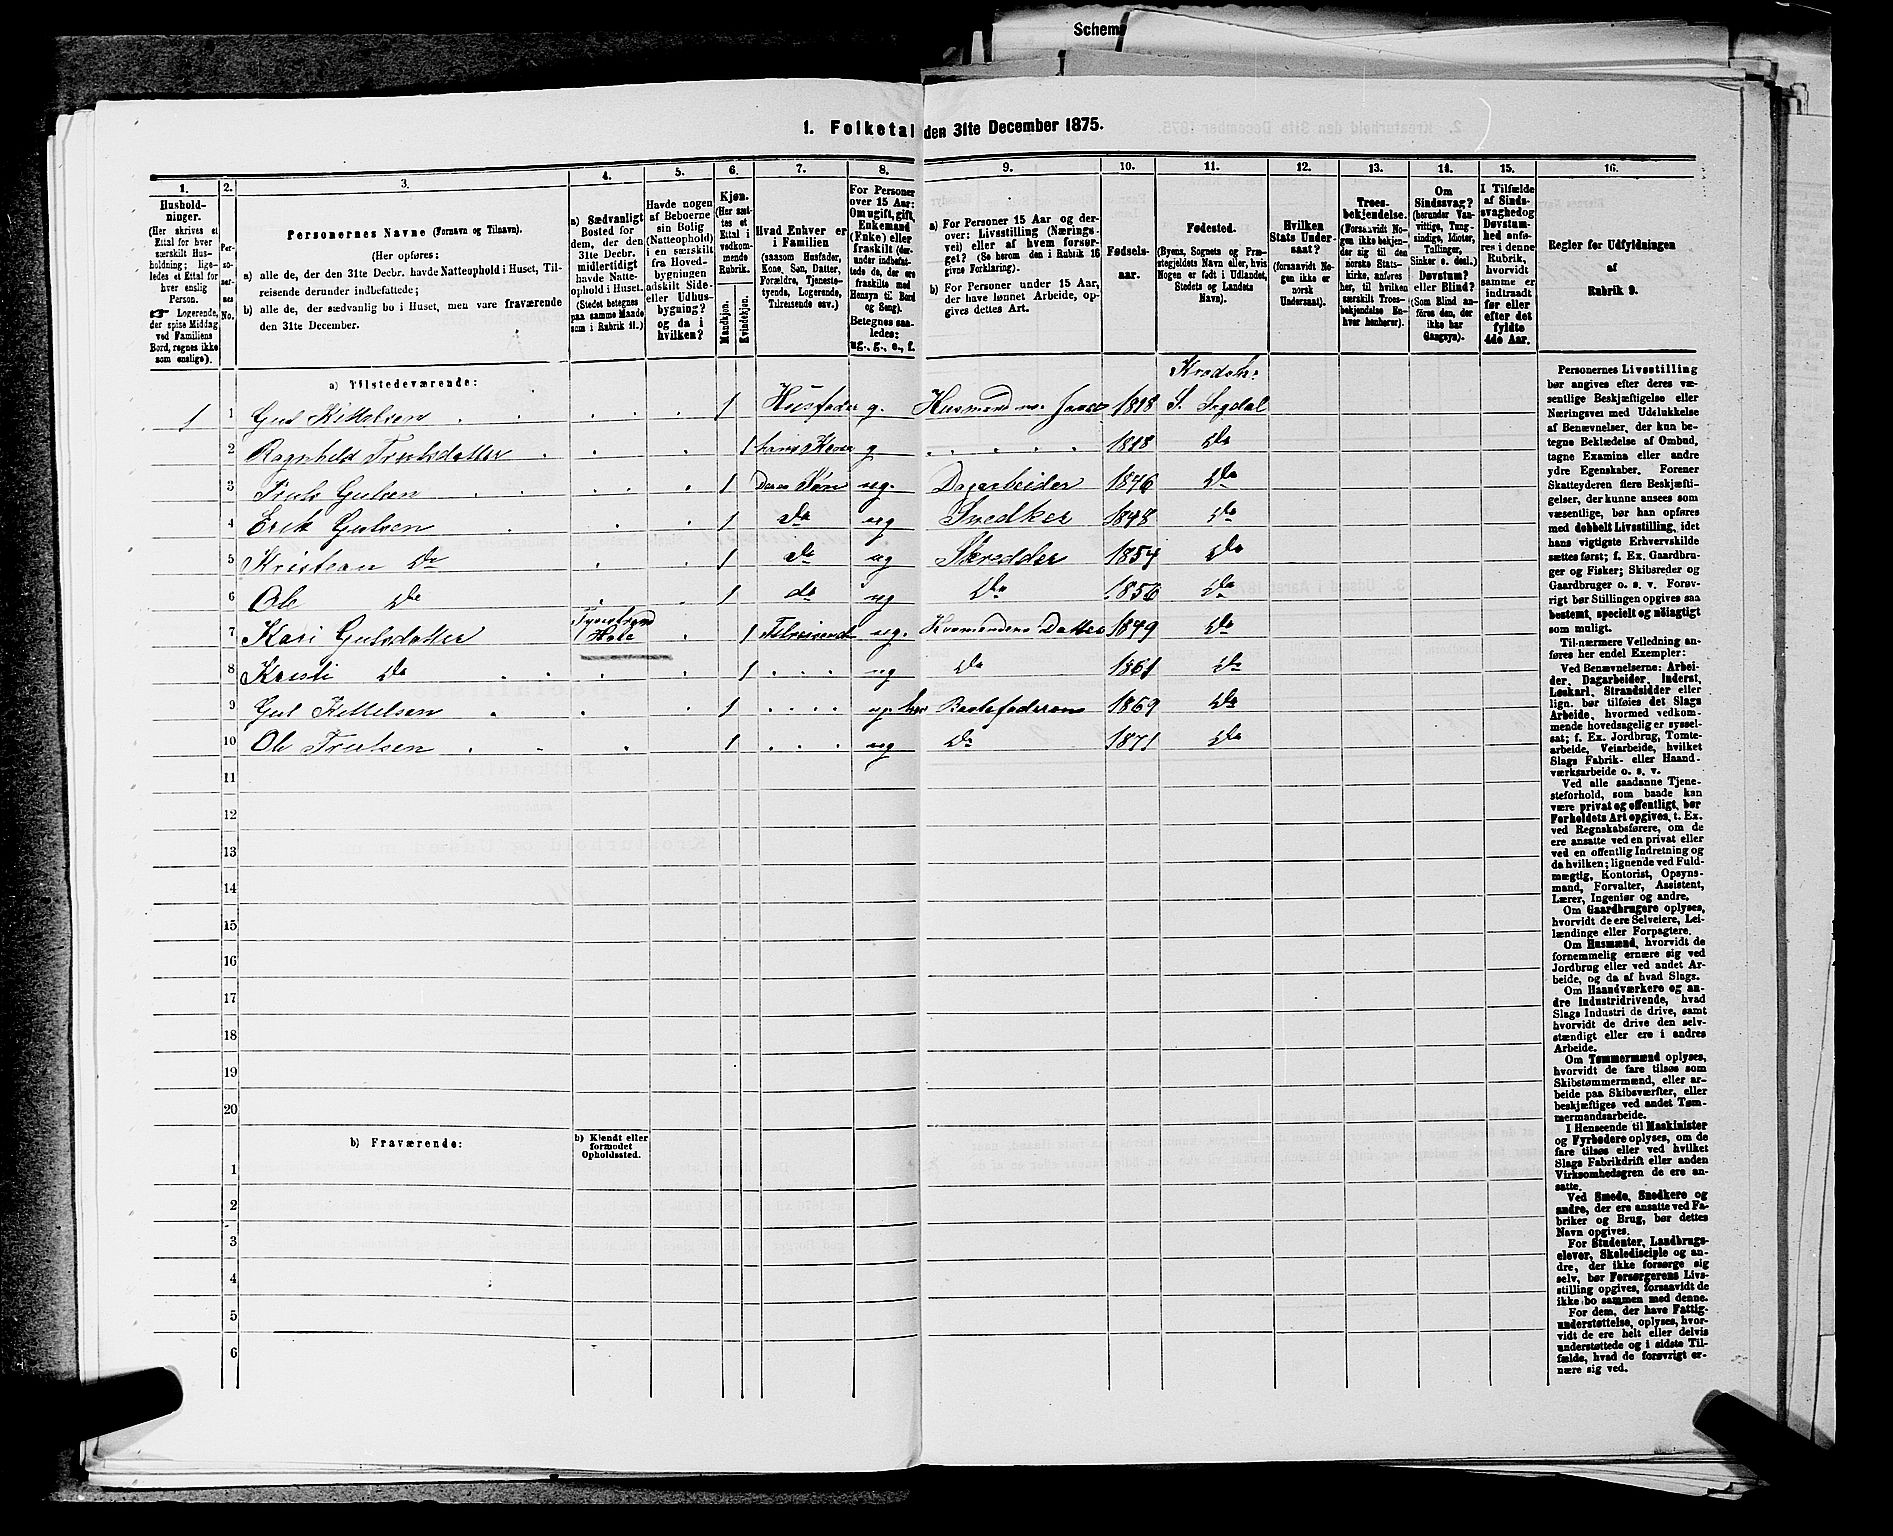 Schem
1. Folketal den 31te December 1875.
1. 2. 3. 4. 5. 6. 7. 8. 9. 10. 11. 12. 13. 14. 15. 16.
Hushold-
ninger.
(Her skrives et
Ettal for hver
særskilt Hus-
holdning; lige-
ledes et Ettal for
hver enslig
Person.
☛ Logerende,
der spise Middag
ved Familiens
Bord, regnes ikke
som enslige).
Per-
so-
ner-
nes
No.
Personernes Navne (Fornavn og Tilnavn).
(Her opføres:
a) alle de, der den 31te Decbr. havde Natteophold i Huset, Til-
reisende derunder indbefattede;
b) alle de, der sædvanlig bo i Huset, men vare fraværende
den 31te December.
a) Sædvanligt
Bosted for
dem, der den
31te Decbr.
midlertidigt
havde Natte-
ophold i Huset.
(Stedet betegnes
paa samme Maade
som i Rubrik 11.)
Havde nogen
af Beboerne
sin Bolig
(Natteophold)
i en særskilt
fra Hoved-
bygningen
adskilt Side-
eller Udhus-
bygning?
og da i
hvilken?
Kjøn.
(Her sæt-
tes et
Ettal i
vedkom-
mende
Rubrik.
Mandkjøn.
Kvindekjøn.
Hvad Enhver er
i Familien
(saasom Husfader,
Kone, Søn, Datter,
Forældre, Tjeneste-
tyende, Logerende,
Tilreisende osv.)
For Personer
over 15 Aar:
Om ugift, gift,
Enkemand
(Enke) eller
fraskilt (der-
under indbefat-
tede de, der ere
fraskilte med
Hensyn til Bord
og Seng).
Betegnes saa-
ledes:
ug., g., e., f.
a) For Personer 15 Aar og der-
over: Livsstilling (Nærings-
vei) eller af hvem forsør-
get? (Se herom den i Rubrik 16
givne Forklaring).
b) For Personer under 15 Aar,
der have lønnet Arbeide, op-
gives dettes Art.
Fødsels-
aar.
Fødested.
(Byens, Sognets og Præ-
stegjeldets Navn eller, hvis
Nogen er født i Udlandet,
Stedets og Landets
Navn).
Hvilken
Stats Under-
saat?
(forsaavidt No-
gen ikke er
norsk
Undersaat).
Troes-
bekjendelse.
(Forsaavidt No-
gen ikke bekjen-
der sig til den
norske Stats-
kirke, anføres
her, til hvilken
særskilt Troes-
bekjendelse En-
hver henhører).
Om
Sindssvag?
(herunder Van-
vittige, Tung-
sindige, Idioter,
Tullinger,
Sinker o. desl.)
Døvstum?
eller Blind?
(Som Blind an-
føres den, der
ikke har
Gangsyn).
I Tilfælde
af Sinds-
svaghed og
Døvstum-
hed anfø-
res i denne
Rubrik,
hvorvidt
samme er
indtraadt
før eller
efter det
fyldte
4de Aar.
Regler for Udfyldningen
af
Rubrik 9.
a) Tilstedeværende:
1 1 Gul Kittelsen 1 Husfader g. Husmand m. Jord 1818 S. Sigdal
2 Ragnhild Trulsdatter 1 hans Kone g 1818 Do
3 Truls Gulsen 1 Deres Søn ug. Dagarbeider 1846 Do
4 Erik Gulsen 1 do ug Snedker 1848 Do
5 Kristian Do 1 do ug Skredder 1854 Do
6 Ole Do 1 do ug Do 1856 Do
7 Kari Gulsdatter 1 Tilreisende ug. Husmandens Datter 1849 Do
8 Kristi Do 1 ug Do 1861 Do
9 Gul Kittelsen 1 ug hos Bestefaderen 1869 Do
10 Ole Trulsen 1 ug Do 1871 Do
11
12
13
14
15
16
17
18
19
20
b) Fraværende:
b) Kjendt eller
formodet
Opholdssted.
1
2
3
4
5
6
Personernes Livsstilling
bør angives efter deres væ-
sentlige Beskjæftigelse eller
Næringsvei med Udelukkelse
af Benævnelser, der kun be-
tegne Beklædelse af Ombud,
tagne Examina eller andre
ydre Egenskaber. Forener
Skatteyderen flere Beskjæfti-
gelser, der kunne ansees som
væsentlige, bør han opføres
med dobbelt Livsstilling, idet
hans vigtigste Erhvervskilde
sættes først; f. Ex. Gaardbru-
ger og Fisker; Skibsreder og
Gaardbruger o. s. v. Forøv-
rigt bør Stillingen opgives saa
bestemt, specielt og nøiagtigt
som muligt.
Til nærmere Veiledning an-
føres her endel Exempler:
Ved Benævnelserne: Arbei-
der, Dagarbeider, Inderst,
Løskarl, Strandsidder eller
lign. bør tilføies det Slags
Arbeide, hvormed vedkom-
mende hovedsagelig er syssel-
sat; f. Ex. Jordbrug, Tomte-
arbeide, Veiarbeide, hvilket
Slags Fabrik- eller Haand-
værksarbeide o. s. v.
Ved alle saadanne Tjene-
steforhold, som baade kan
være privat og offentligt, bør
Forholdets Art opgives, t. Ex.
ved Regnskabsførere, om de
ere ansatte ved en privat eller
ved en offentlig Indretning og
da hvilken; lignende ved Fuld-
mægtig, Kontorist, Opsyns-
mand, Forvalter, Assistent,
Lærer, Ingeniør og andre.
Om Gaardbrugere oplyses,
hvorvidt de ere Selveiere, Lei-
lændinge eller Forpagtere.
Om Husmænd, hvorvidt de
fornemmelig ernære sig ved
Jordbrug eller ved andet Ar-
beide, og da af hvad Slags.
Om Haandværkere og an-
dre Industridrivende, hvad
Slags Industri de drive, samt
hvorvidt de drive den selv-
stændigt eller ere i andres
Arbeide.
Om Tømmermænd oplyses,
hvorvidt de fare tilsøs som
Skibstømmermænd, eller ar-
beide paa Skibsværfter, eller
beskjæftiges ved andet Tøm-
mermandsarbeide.
I Henseende til Maskinister
og Fyrbødere oplyses, om de
fare tilsøs eller ved hvilket
Slags Fabrikdrift eller anden
Virksomhedsgren de ere an-
satte.
Ved Smede, Snedkere og
andre, der ere ansatte ved Fa-
briker og Brug, bør dettes
Navn opgives.
For Studenter, Landbrugs-
elever, Skoledisciple og an-
dre, der ikke forsørge sig
selv, bør Forsørgerens Livs-
stilling opgives, forsaavidt de
ikke bo sammen med denne.
For dem, der have Fattig-
understøttelse, oplyses, hvor-
vidt de ere helt eller delvis
understøttede og i sidste Til-
fælde, hvad de forøvrigt er-
nære sig ved.